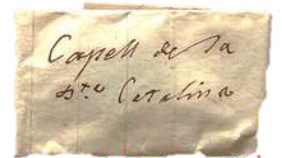 Capell de la
Sta Catalina